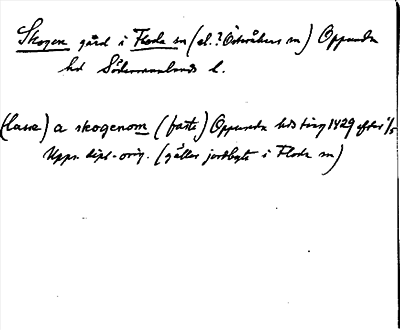 Skogen gård i Floda sn (el.? Östråkers sn) Oppunda
hd Södermanlands l.
(lasse) a skogenom (faste) Oppunda hds ting 1429 efter 1/5
Uppr. dipl. orig. (gäller jordbyte i Floda sn)